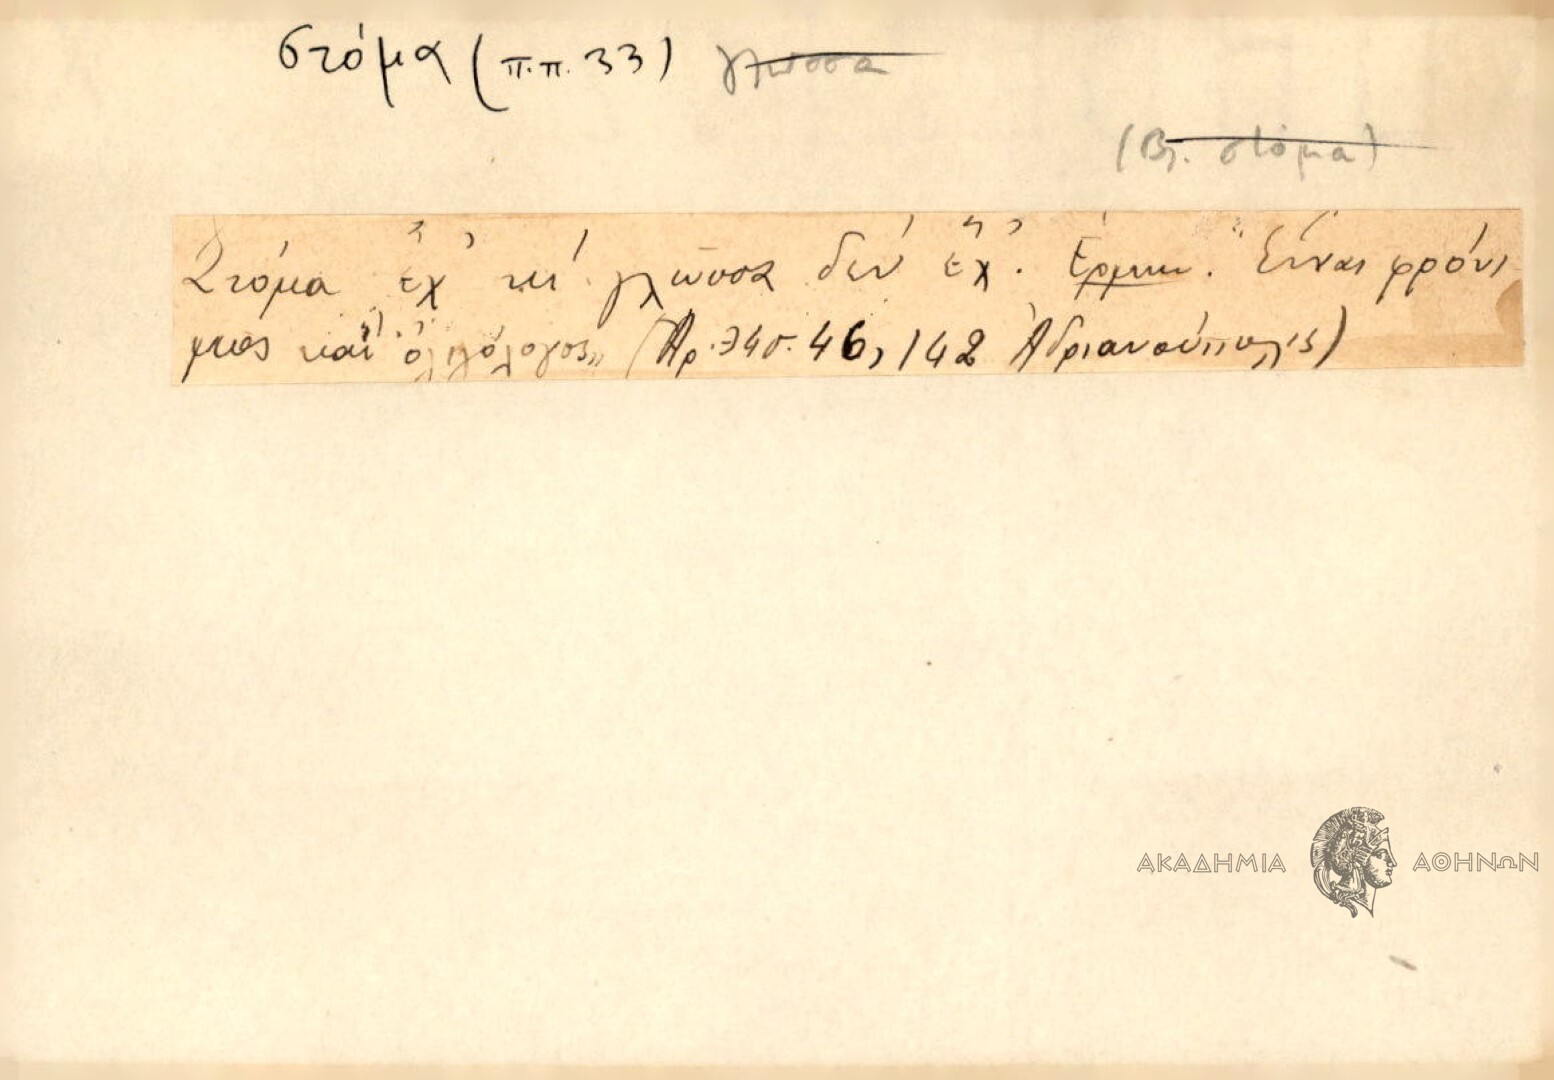 στόμα (π.π. 33) γλώσσα
(Βλ. στόμα)
Στόμα ἔχ' καὶ γλῶσσα δὲν ἔχ'. Ἑρμην. "Εἶναι φρόνι
μος καὶ ὀλιγόλογος" (Ἀρ. 46, 142 Ἀδριανούπολις)
ΑΚΑΔΗΜΙΑ ΑΘΗΝΩΝ